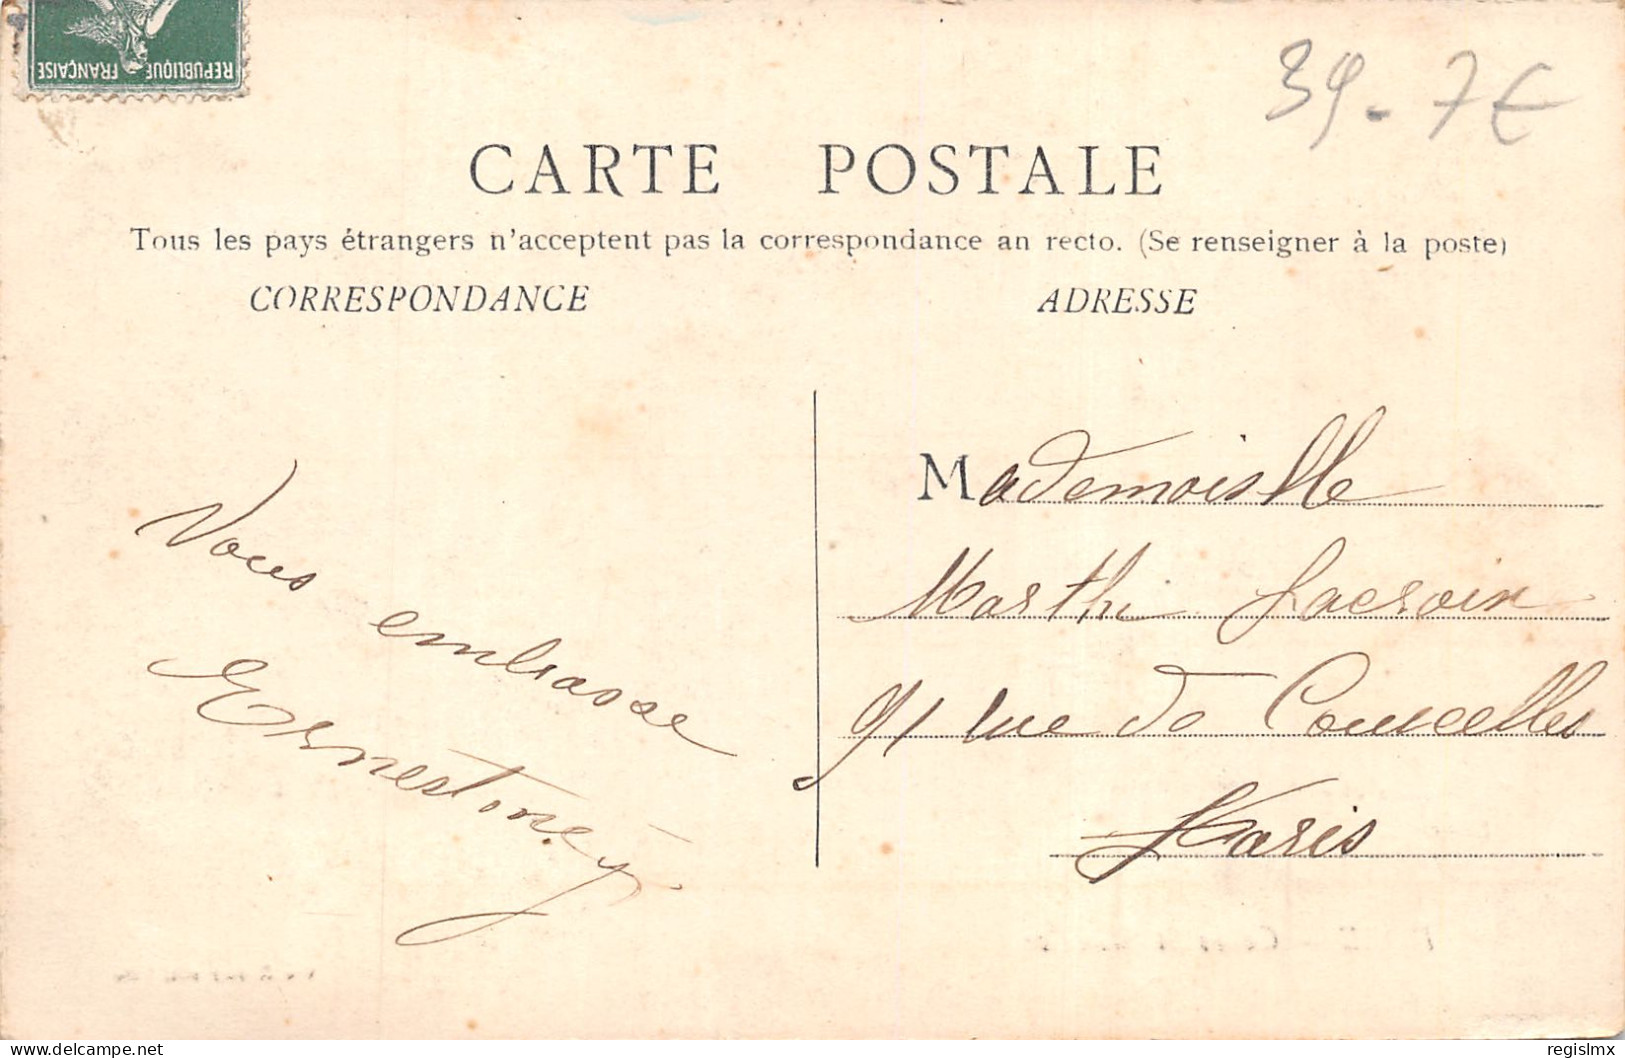 RÉPUBLIQUE FRANÇAISE
39 - 7€
CARTE POSTALE
Tous les pays étrangers n'acceptent pas la correspondance au recto. (Se renseigner à la poste)
CORRESPONDANCE
ADRESSE
Vous embrasse
Ernestine
Mademoiselle
Marthe Lacroix
91 rue de Courcelles
Paris
delcampe.net
regislmx